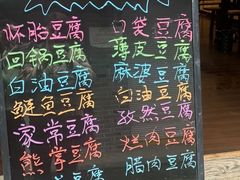 怀胎豆腐 口袋豆腐
回锅豆腐 薄皮豆腐
白油豆腐 麻婆豆腐
鲢鱼豆腐 白油豆腐
家常豆腐 孜然豆腐
熊掌豆腐 烧肉豆腐
豆腐 腊肉豆腐